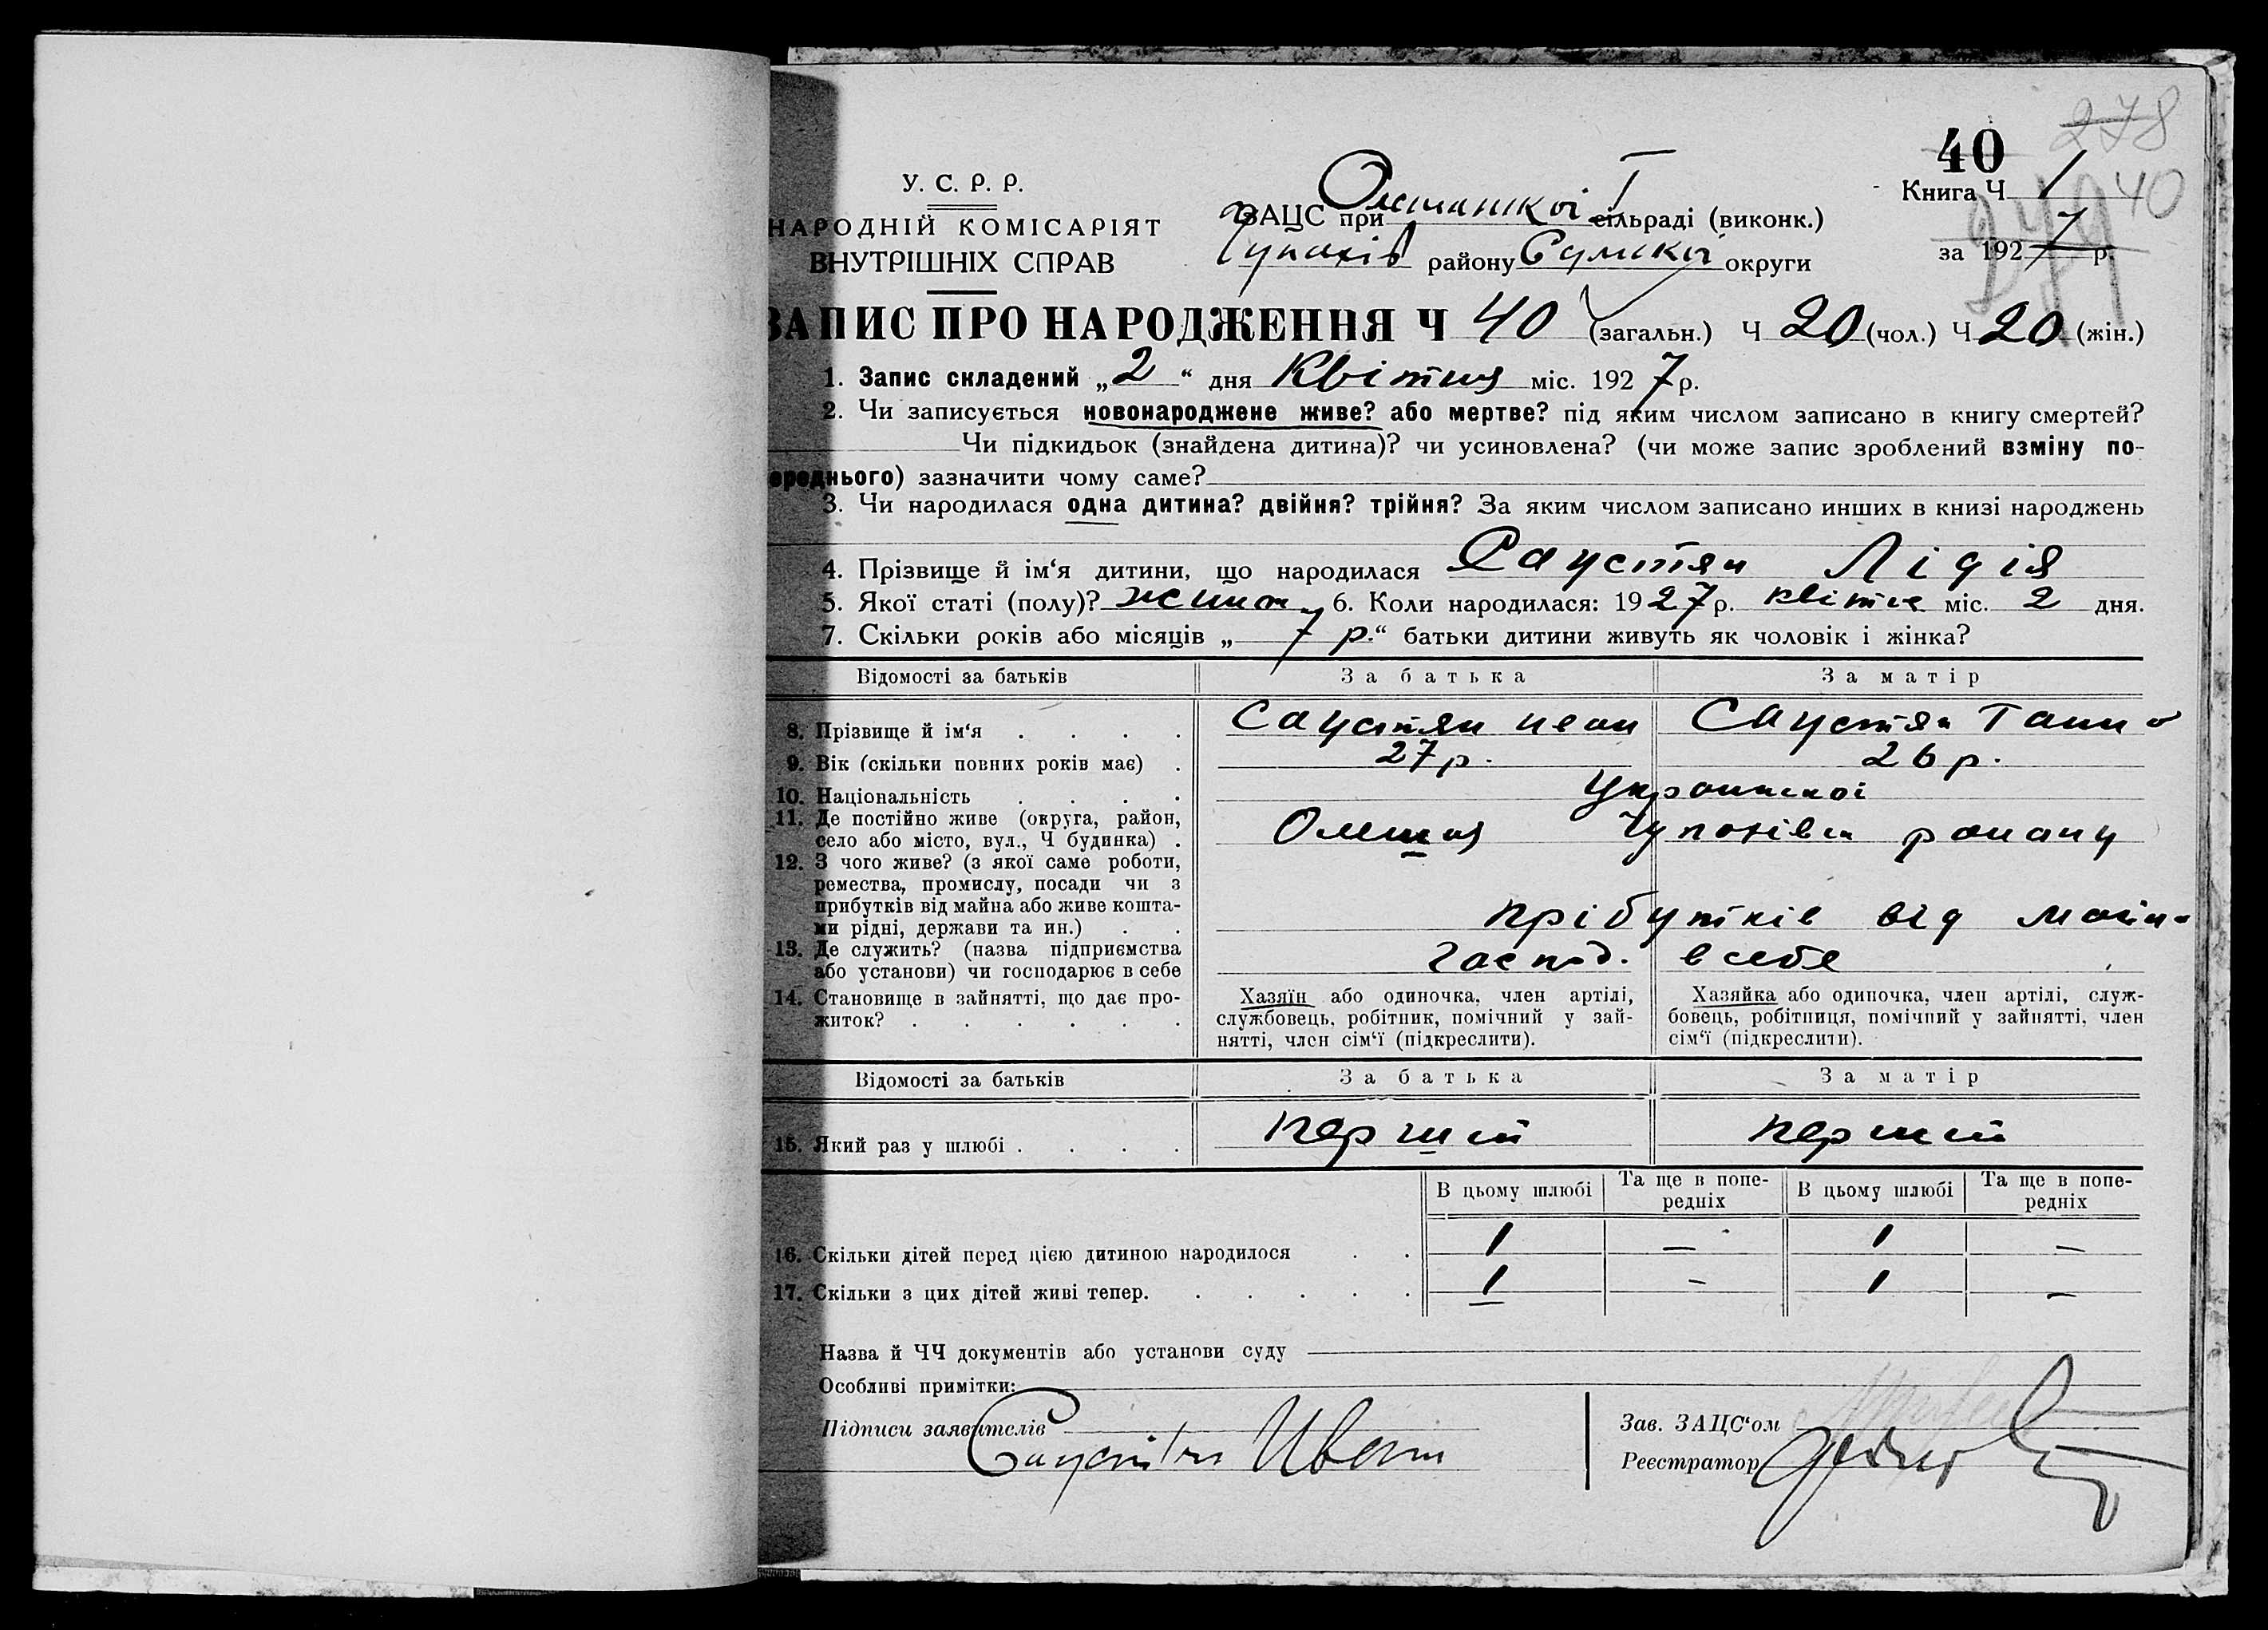 278
40
У. С. Р. Р.
Книга Ч 1
40
НАРОДНІЙ КОМІСАРІЯТ
ЗАЦС при сільраді (виконк.)
за 1927 р.
ВНУТРІШНІХ СПРАВ
району Сумської округи
ЗАПИС ПРО НАРОДЖЕННЯ Ч 40 (загальн.) Ч 20 (чол.) Ч 20 (жін.)
1. Запис складений „2“ дня Квітня міс. 1927 р.
2. Чи записується новонароджене живе? або мертве? під яким числом записано в книгу смертей?
Чи підкидьок (знайдена дитина)? чи усиновлена? (чи може запис зроблений взміну по-
ереднього) зазначити чому саме?
3. Чи народилася одна дитина? двійня? трійня? За яким числом записано инших в книзі народжень
4. Прізвище й ім‘я дитини, що народилася Саустян Лідія
5. Якої статі (полу)? 6. Коли народилася: 1927 р. міс. 2 дня.
7. Скільки років або місяців „7 р.“ батьки дитини живуть як чоловік і жінка?
Відомості за батьків За батька За матір
8. Прізвище й ім‘я . . . . Саустян Саустян
9. Вік (скільки повних років має) . 27 р. 26 р.
10. Національність . . . .
11. Де постійно живе (округа, район,
село або місто, вул., Ч будинка) .
12. З чого живе? (з якої саме роботи,
ремества, промислу, посади чи з
прибутків від майна або живе кошта-
ми рідні, держави та ин.) . . прібутків від
13. Де служить? (назва підприємства
або установи) чи господарює в себе господ. в себе
14. Становище в зайнятті, що дає про-
житок? . . . . . .
Хазяїн або одиночка, член артілі,
службовець, робітник, помічний у зай-
нятті, член сім‘ї (підкреслити).
Хазяйка або одиночка, член артілі, служ-
бовець, робітниця, помічний у зайнятті, член
сім‘ї (підкреслити).
Відомості за батьків За батька За матір
15. Який раз у шлюбі . . . . перший перший
В цьому шлюбі Та ще в попе-
редніх В цьому шлюбі Та ще в попе-
редніх
16. Скільки дітей перед цією дитиною народилося . . 1 — 1 —
17. Скільки з цих дітей живі тепер. . . . . . 1 — 1 —
Назва й ЧЧ документів або установи суду
Особливі примітки:
Підписи заявителів
Саустян Иван
Зав. ЗАЦС‘ом
Реєстратор